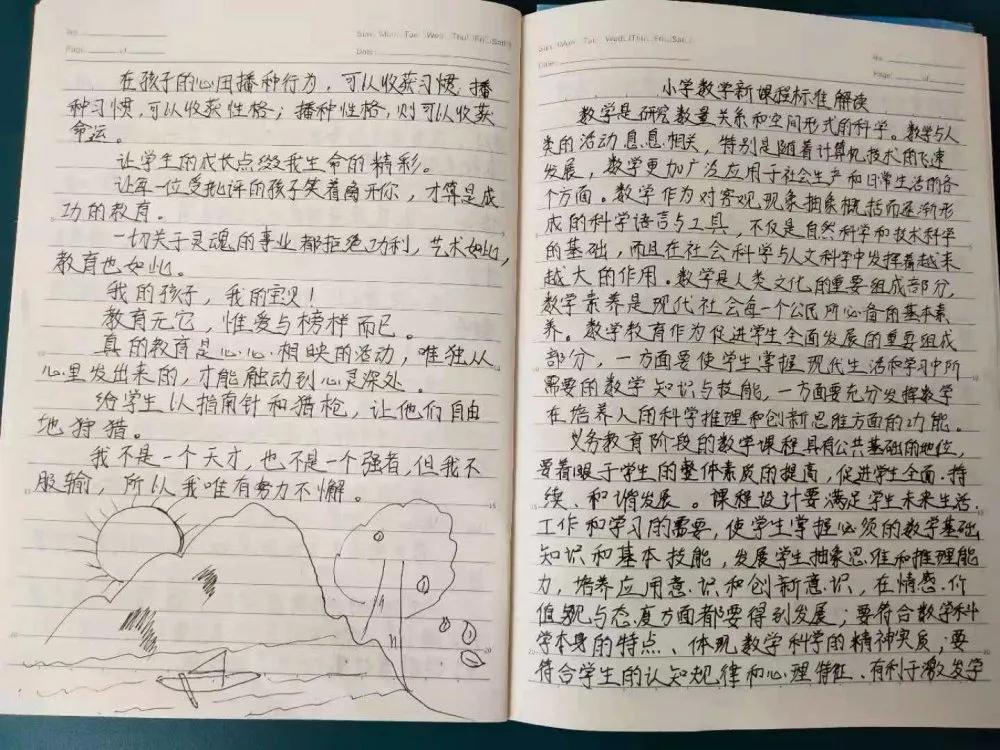 No.
Page of
Sun. Mon. Tue. Wed. Thu. Fri. Sat.
Date:
在孩子的心田播种行为，可以收获习惯，播
种习惯，可以收获性格；播种性格，则可以收获
命运。
让学生的成长点缀我生命的精彩。
让每一位受批评的孩子笑着离开你，才算是成
功的教育。
一切关于灵魂的事业都拒绝功利，艺术如此，
教育也如此。
我的孩子，我的宝贝！
教育无它，惟爱与榜样而已。
真的教育是心心相映的活动，唯独从
心里发出来的，才能触动到心灵深处。
给学生以指南针和猎枪，让他们自由
地狩猎。
我不是一个天才，也不是一个强者，但我不
服输，所以我唯有努力不懈。
Sun. Mon. Tue. Wed. Thu. Fri. Sat.
Date:
No.
Page: of
小学数学新课程标准解读
数学是研究数量关系和空间形式的科学。数学与人
类的活动息息相关，特别是随着计算机技术的飞速
发展，数学更加广泛应用于社会生产和日常生活的各
个方面。数学作为对客观现象抽象概括而逐渐形
成的科学语言与工具，不仅是自然科学和技术科学
的基础，而且在社会科学与人文科学中发挥着越来
越大的作用。数学是人类文化的重要组成部分，
数学素养是现代社会每一个公民所必备的基本素
养。数学教育作为促进学生全面发展的重要组成
部分，一方面要使学生掌握现代生活和学习中所
需要的数学知识与技能，一方面要充分发挥数学
在培养人的科学推理和创新思维方面的功能。
义务教育阶段的数学课程具有公共基础的地位，
要着眼于学生的整体素质的提高，促进学生全面、持
续、和谐发展。课程设计要满足学生未来生活、
工作和学习的需要，使学生掌握必须的数学基础
知识和基本技能，发展学生抽象思维和推理能
力，培养应用意识和创新意识，在情感、价
值观与态度方面都要得到发展；要符合数学科
学本身的特点、体现数学科学的精神实质；要
符合学生的认知规律和心理特征、有利于激发学